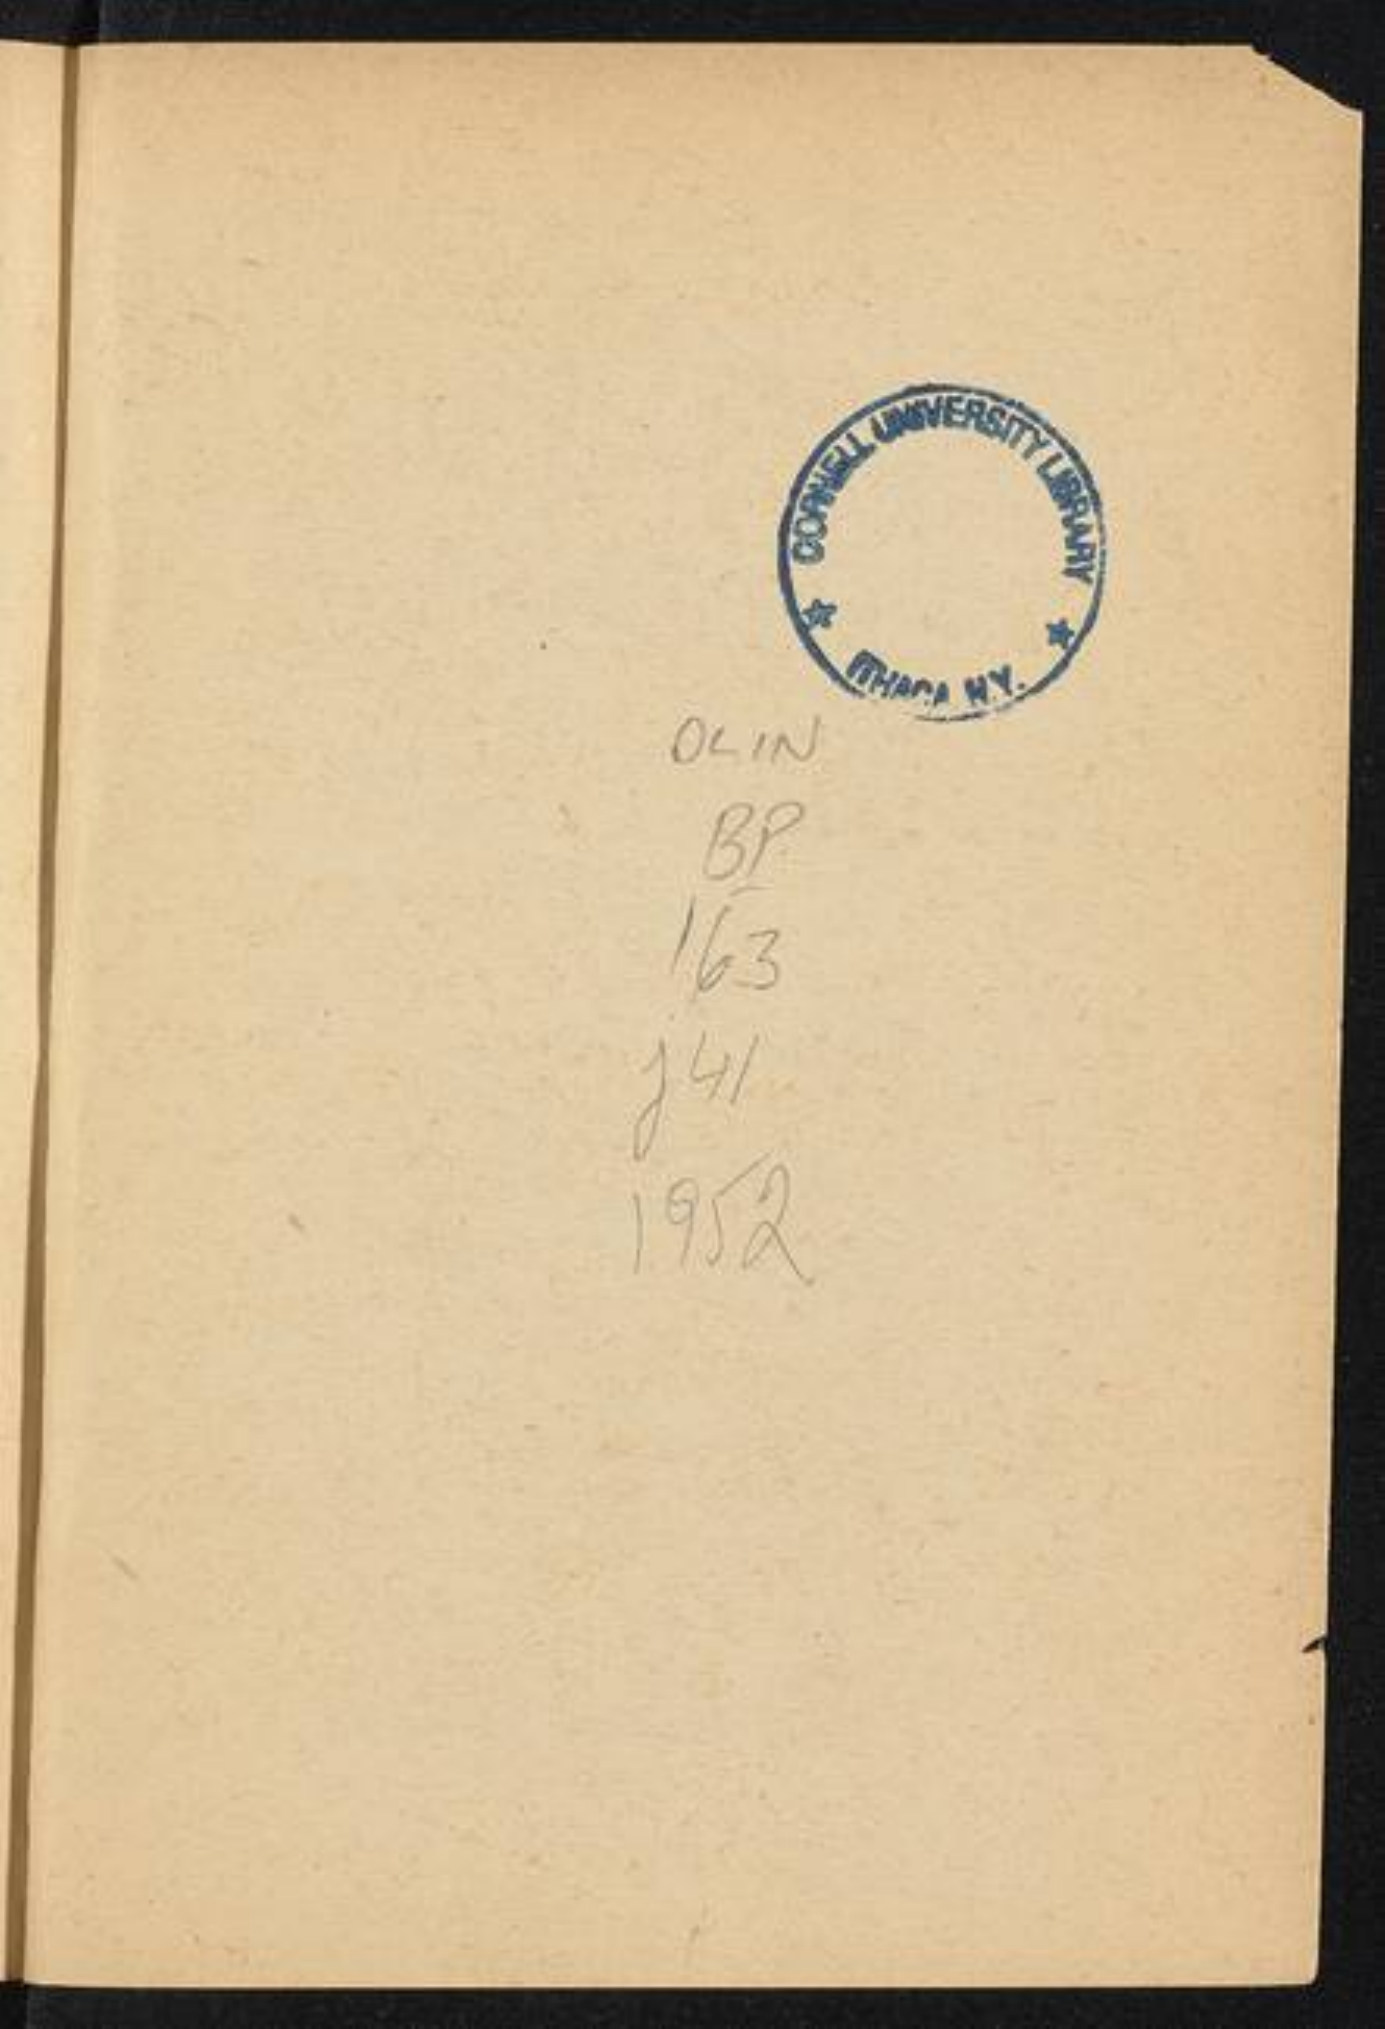 CORNELL UNIVERSITY LIBRARY
ITHACA N.Y.
OLIN
BP
163
J41
1952